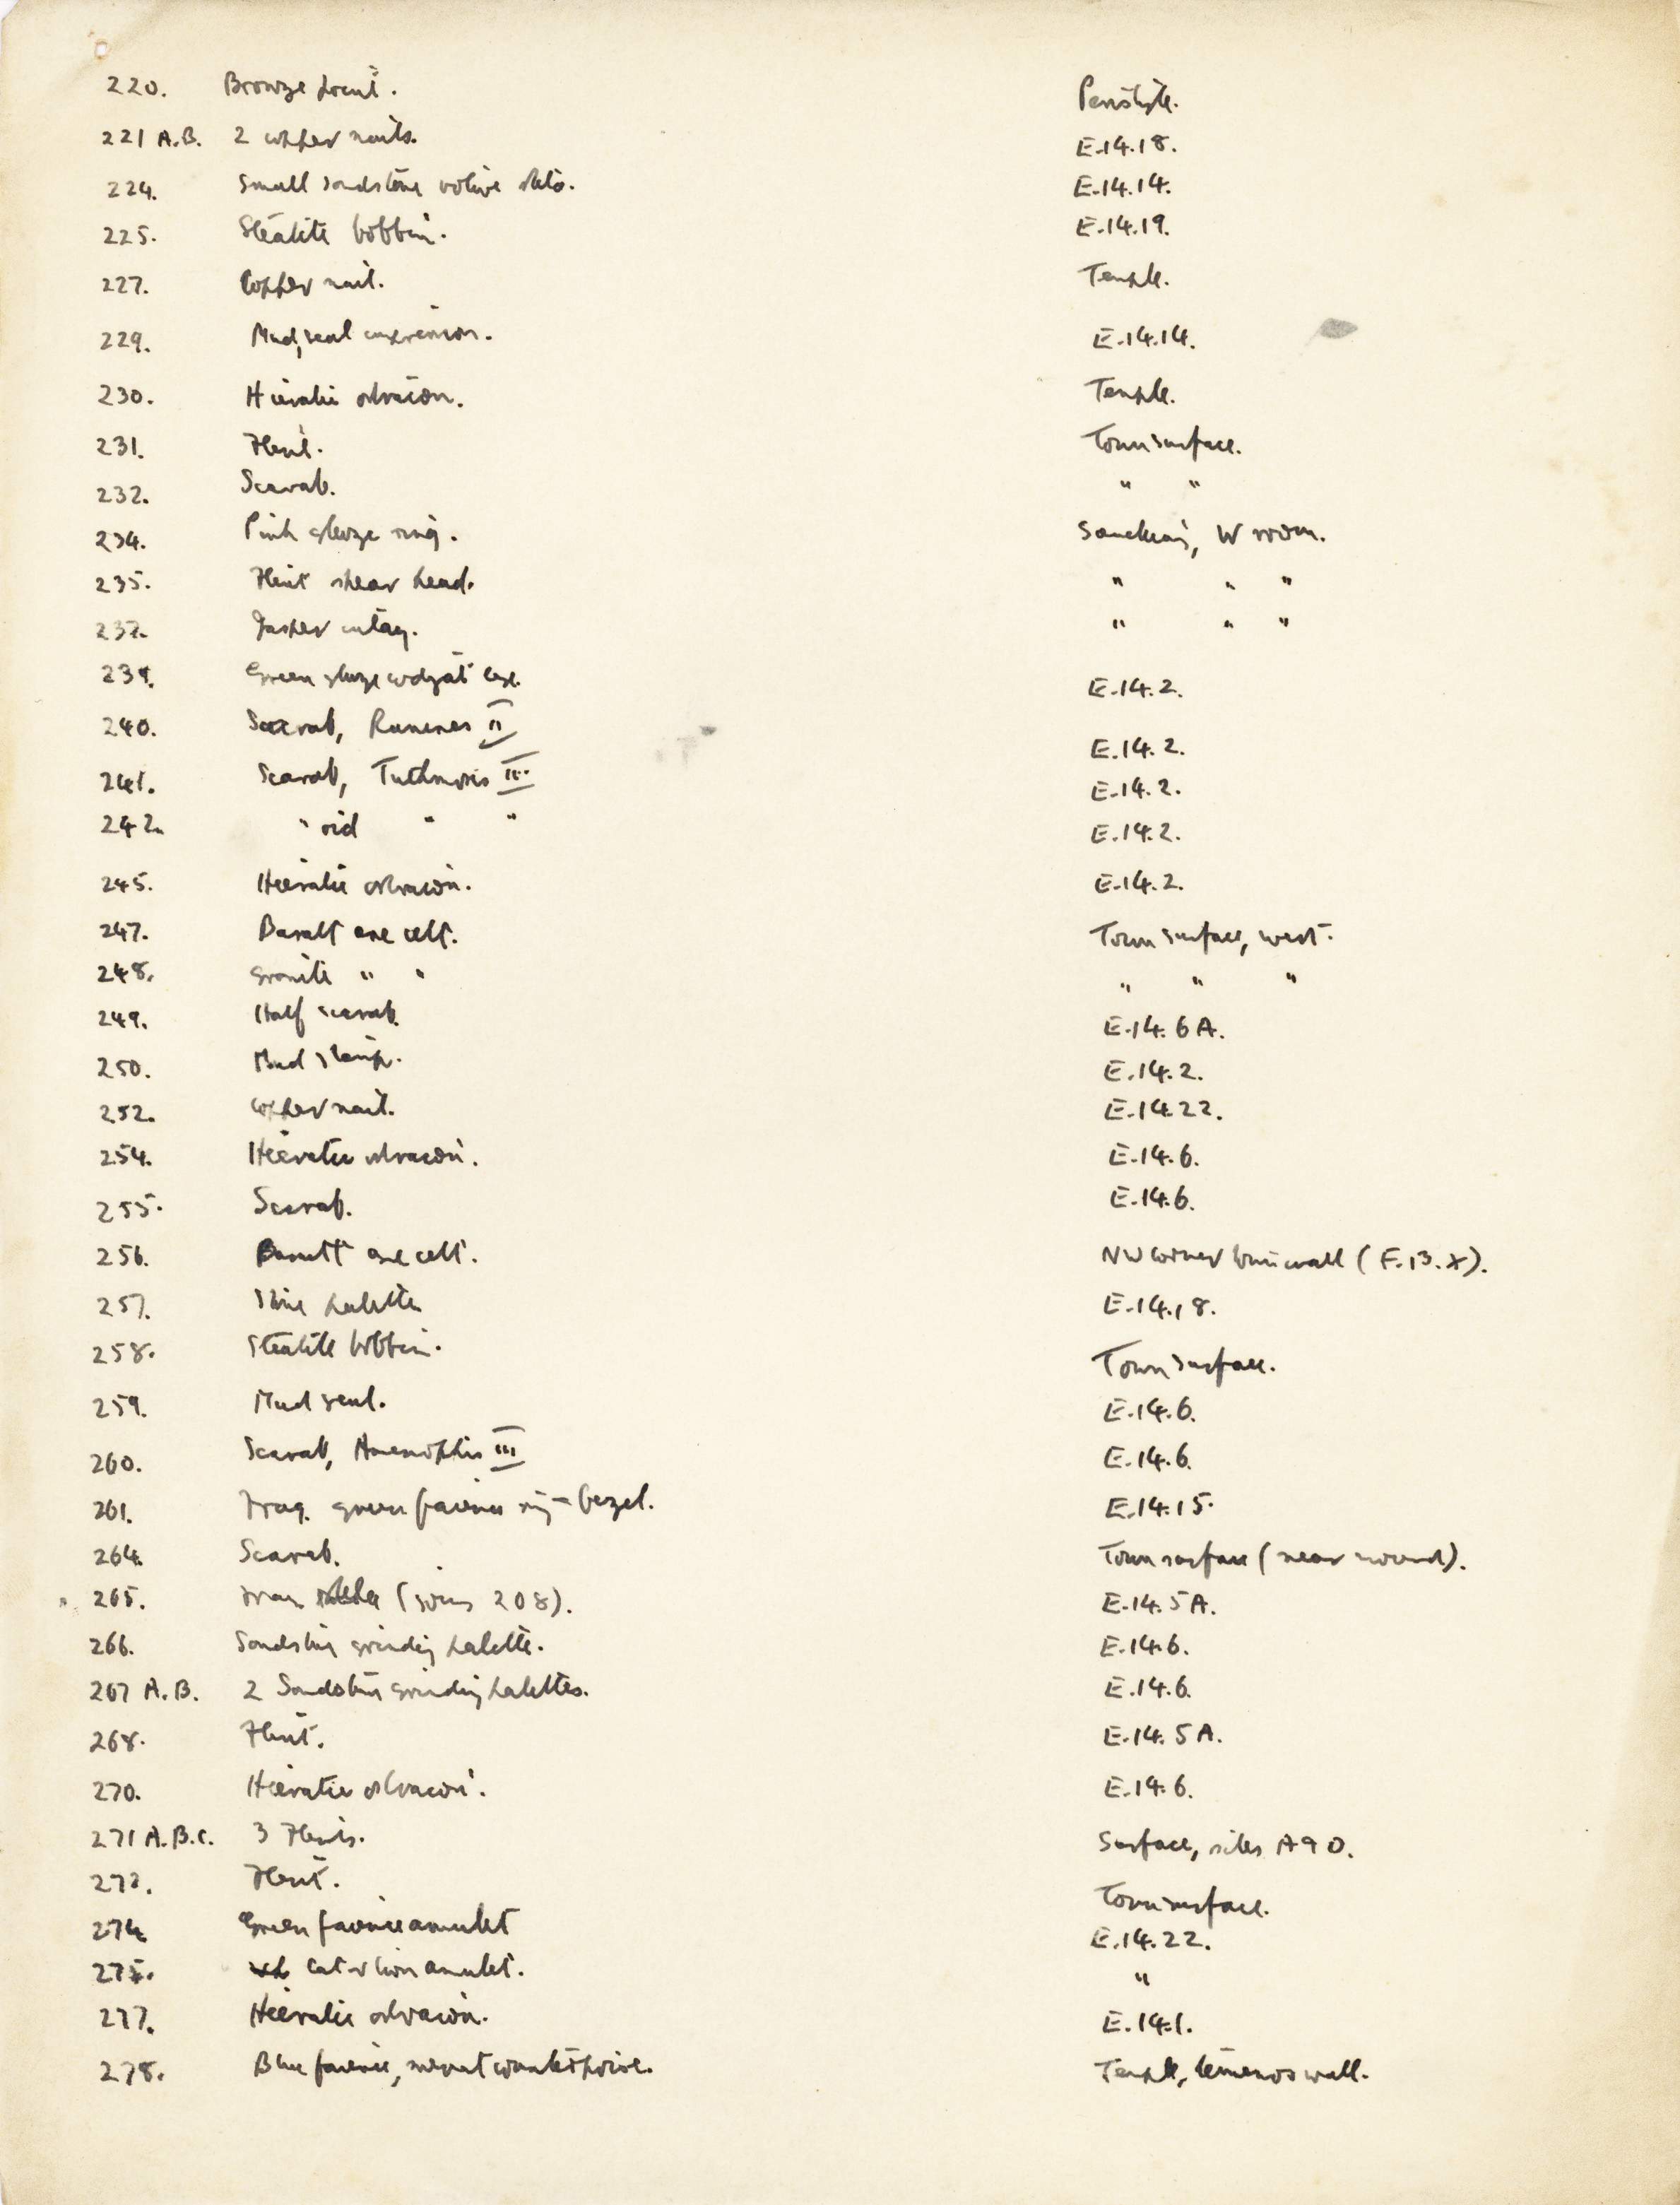 220. Bronze point. Peristyle.
221 A.B. 2 copper nails. E.14.18.
224. Small sandstone votive stela. E.14.14.
225. Steatite bobbin. E.14.19.
227. Copper nail. Temple.
229. Mud, seal impression. E.14.14.
230. Hieratic ostracon. Temple.
231. Flint. Town surface.
232. Scarab. " "
234. Pink glaze ring. Sanctuary, W room.
235. Flint spear head. " " "
237. Jasper inlay. " " "
239. Green glaze wdzat eye. E.14.2.
240. Scarab, Rameses II E.14.2.
241. Scarab, Tuthmosis III E.14.2.
242. " " " E.14.2.
245. Hieratic ostracon. E.14.2.
247. Basalt axe celt. Town surface, west.
248. Granite " " " " "
249. Half scarab. E.14.6A.
250. Mud stamp. E.14.2.
252. Copper nail. E.14.22.
254. Hieratic ostracon. E.14.6.
255. Scarab. E.14.6.
256. Basalt axe celt. NW corner town wall (F.13.X).
257. Stone palette E.14.18.
258. Steatite bobbin. Town surface.
259. Mud seal. E.14.6.
260. Scarab, Amenophis III E.14.6.
261. Frag. green faience ring-bezel. E.14.15.
264. Scarab. Town surface (near mound).
265. Frag. (joins 208). E.14.5A.
266. Sandstone grinding palette. E.14.6.
267 A.B. 2 Sandstone grinding palettes. E.14.6.
268. Flint. E.14.5A.
270. Hieratic ostracon. E.14.6.
271 A.B.C. 3 Flints. Surface, sites A & D.
272. Flint. Town surface.
274. Green faience amulet E.14.22.
275. Cat or lion amulet. "
277. Hieratic ostracon. E.14.1.
278. Blue faience, menat counterpoise. Temple, temenos wall.